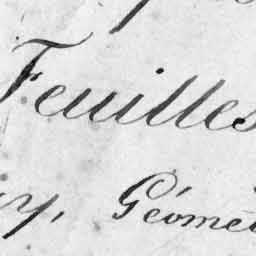 Feuilles
y, Géomèt